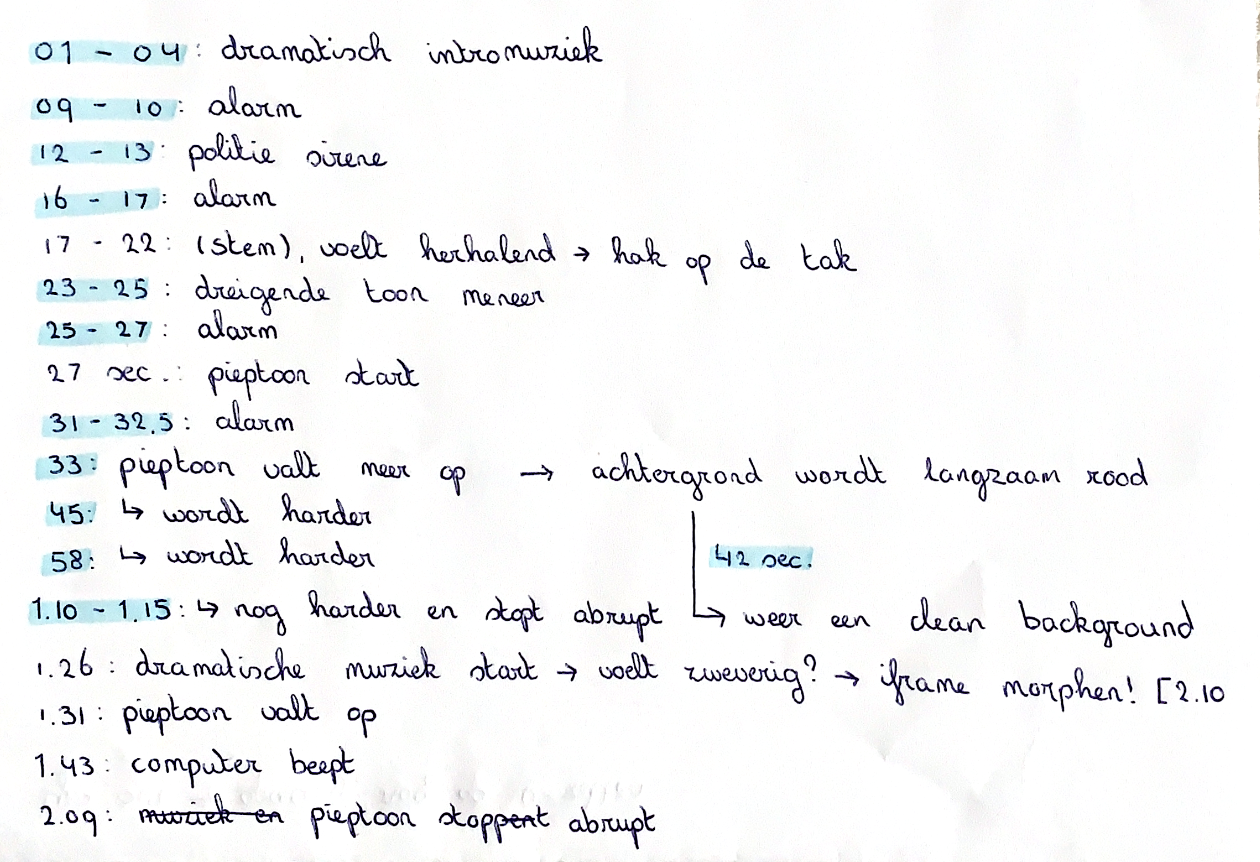 01 - 04: dramatisch intromuziek
09 - 10: alarm
12 - 13: politie sirene
16 - 17: alarm
17 - 22: (stem), voelt herhalend → hak op de tak
23 - 25: dreigende toon meneer
25 - 27: alarm
27 sec.: pieptoon start
31 - 32,5: alarm
33: pieptoon valt meer op → achtergrond wordt langzaam rood
45: ↳ wordt harder
58: ↳ wordt harder
42 sec.
1.10 - 1.15: ↳ nog harder en stopt abrupt ↳ weer een clean background
1.26: dramatische muziek start → voelt zweverig? → iframe morphen! [2.10
1.31: pieptoon valt op
1.43: computer beept
2.09: muziek en pieptoon stoppent abrupt